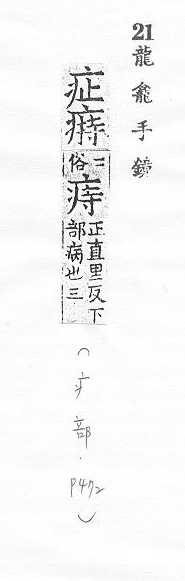 21 龍龕手鏡
二俗
痔
正直里反下
部病也三
(疒部. P472)